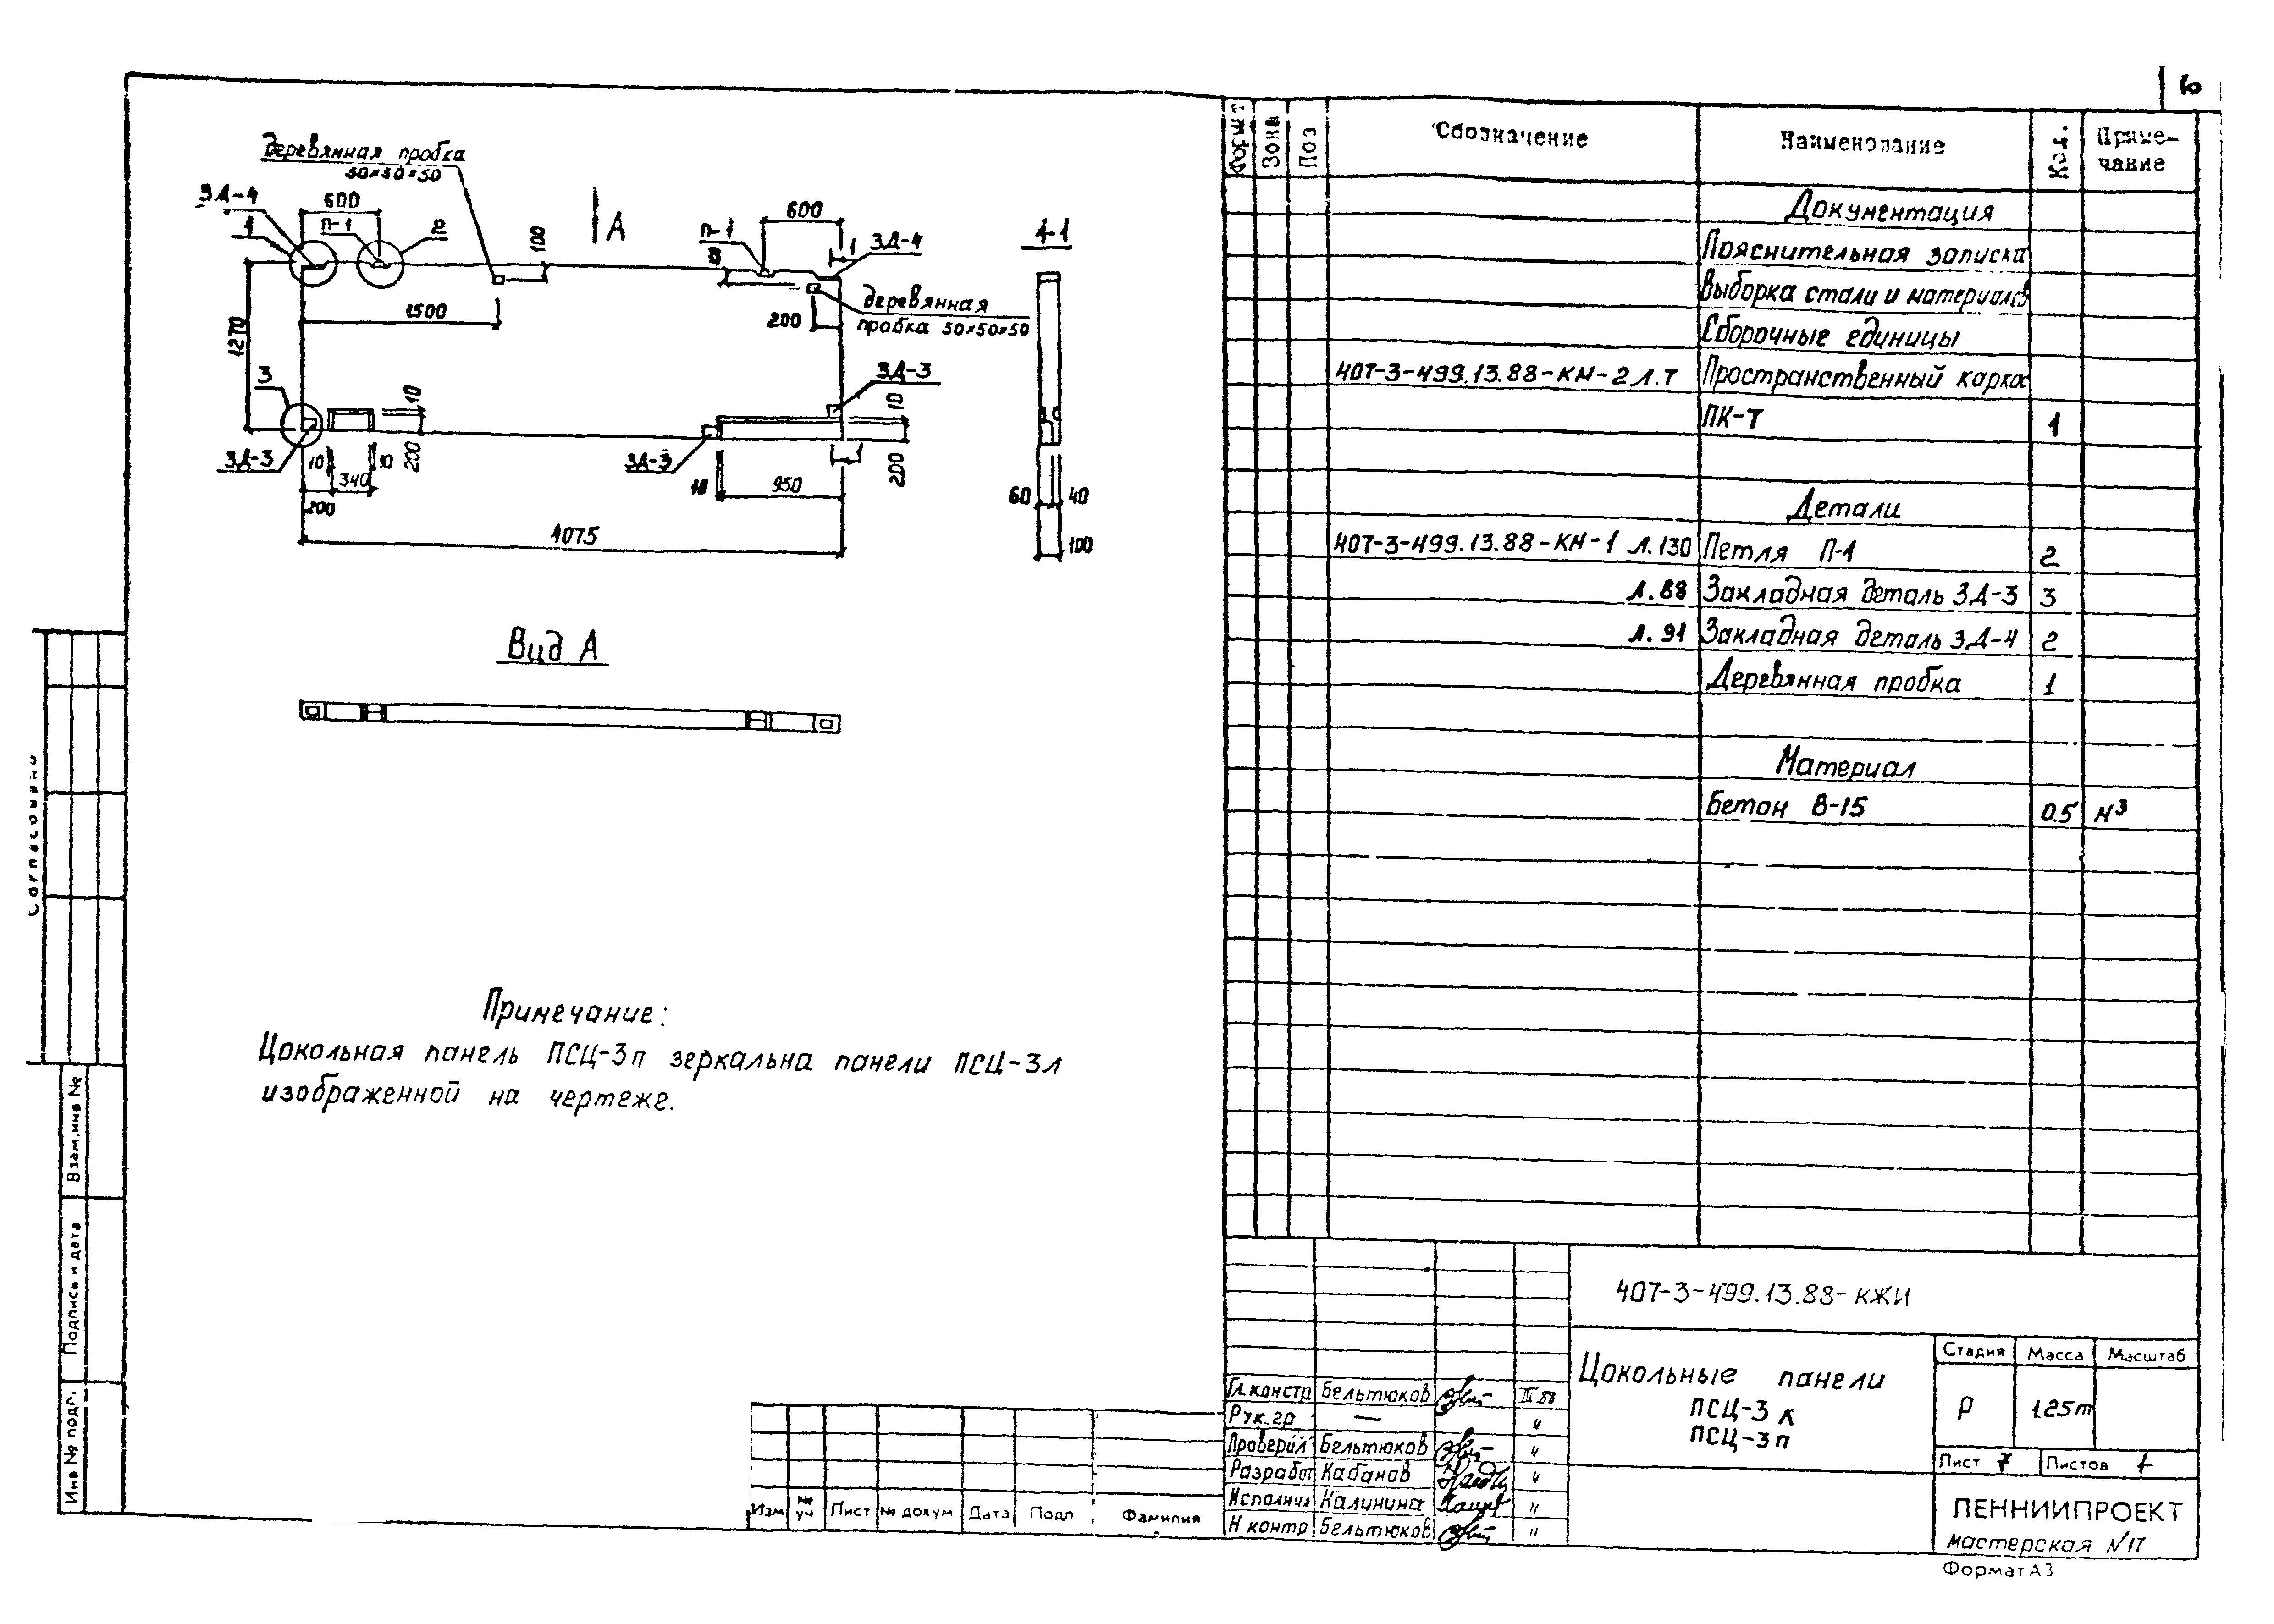 деревянная пробка
50×50×50
ЗД-4
600
1
П-1
2
100
А
600
П-1
1
ЗД-4
100
1-1
деревянная
пробка 50×50×50
1500
200
1270
3
ЗД-3
10
10
ЗД-3
10
340
10
200
ЗД-3
200
10
950
200
4075
60
40
100
Вид А
Примечание:
Цокольная панель ПСЦ-3п зеркальна панели ПСЦ-3л
изображенной на чертеже.
Формат
Зона
Поз
Обозначение
Наименование
Кол.
Приме-
чание
Документация
Пояснительная записка
Выборка стали и материалов
Сборочные единицы
407-3-499.13.88-КН-2 л.7 Пространственный каркас
ПК-7 1
Детали
407-3-499.13.88-КН-1 л.130 Петля П-1 2
л.88 Закладная деталь ЗД-3 3
л.91 Закладная деталь ЗД-4 2
Деревянная пробка 1
Материал
Бетон В-15 0.5 м³
407-3-499.13.88-КЖИ
Цокольные панели
ПСЦ-3л
ПСЦ-3п
Стадия Масса Масштаб
Р 1.25т
Лист 7 Листов 1
ЛЕННИИПРОЕКТ
мастерская №17
Формат А3
Гл.констр Бельтюков III 88
Рук.гр — "
Проверил Бельтюков "
Разработ Кабанов "
Исполнил Калинина "
Н контр Бельтюков "
Изм № уч Лист № докум Дата Подп Фамилия
Согласовано
Взам.инв №
Подпись и дата
Инв № подл.